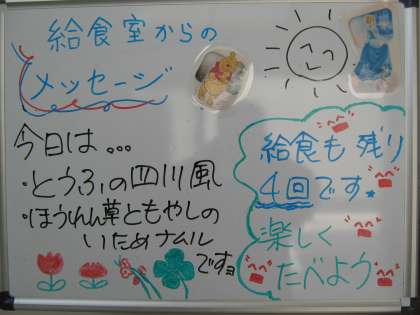 給食室からの
メッセージ
今日は...
・とうふの四川風
・ほうれん草ともやしの
いためナムル
ですョ
給食も残り
4回です。
楽しく
たべよう